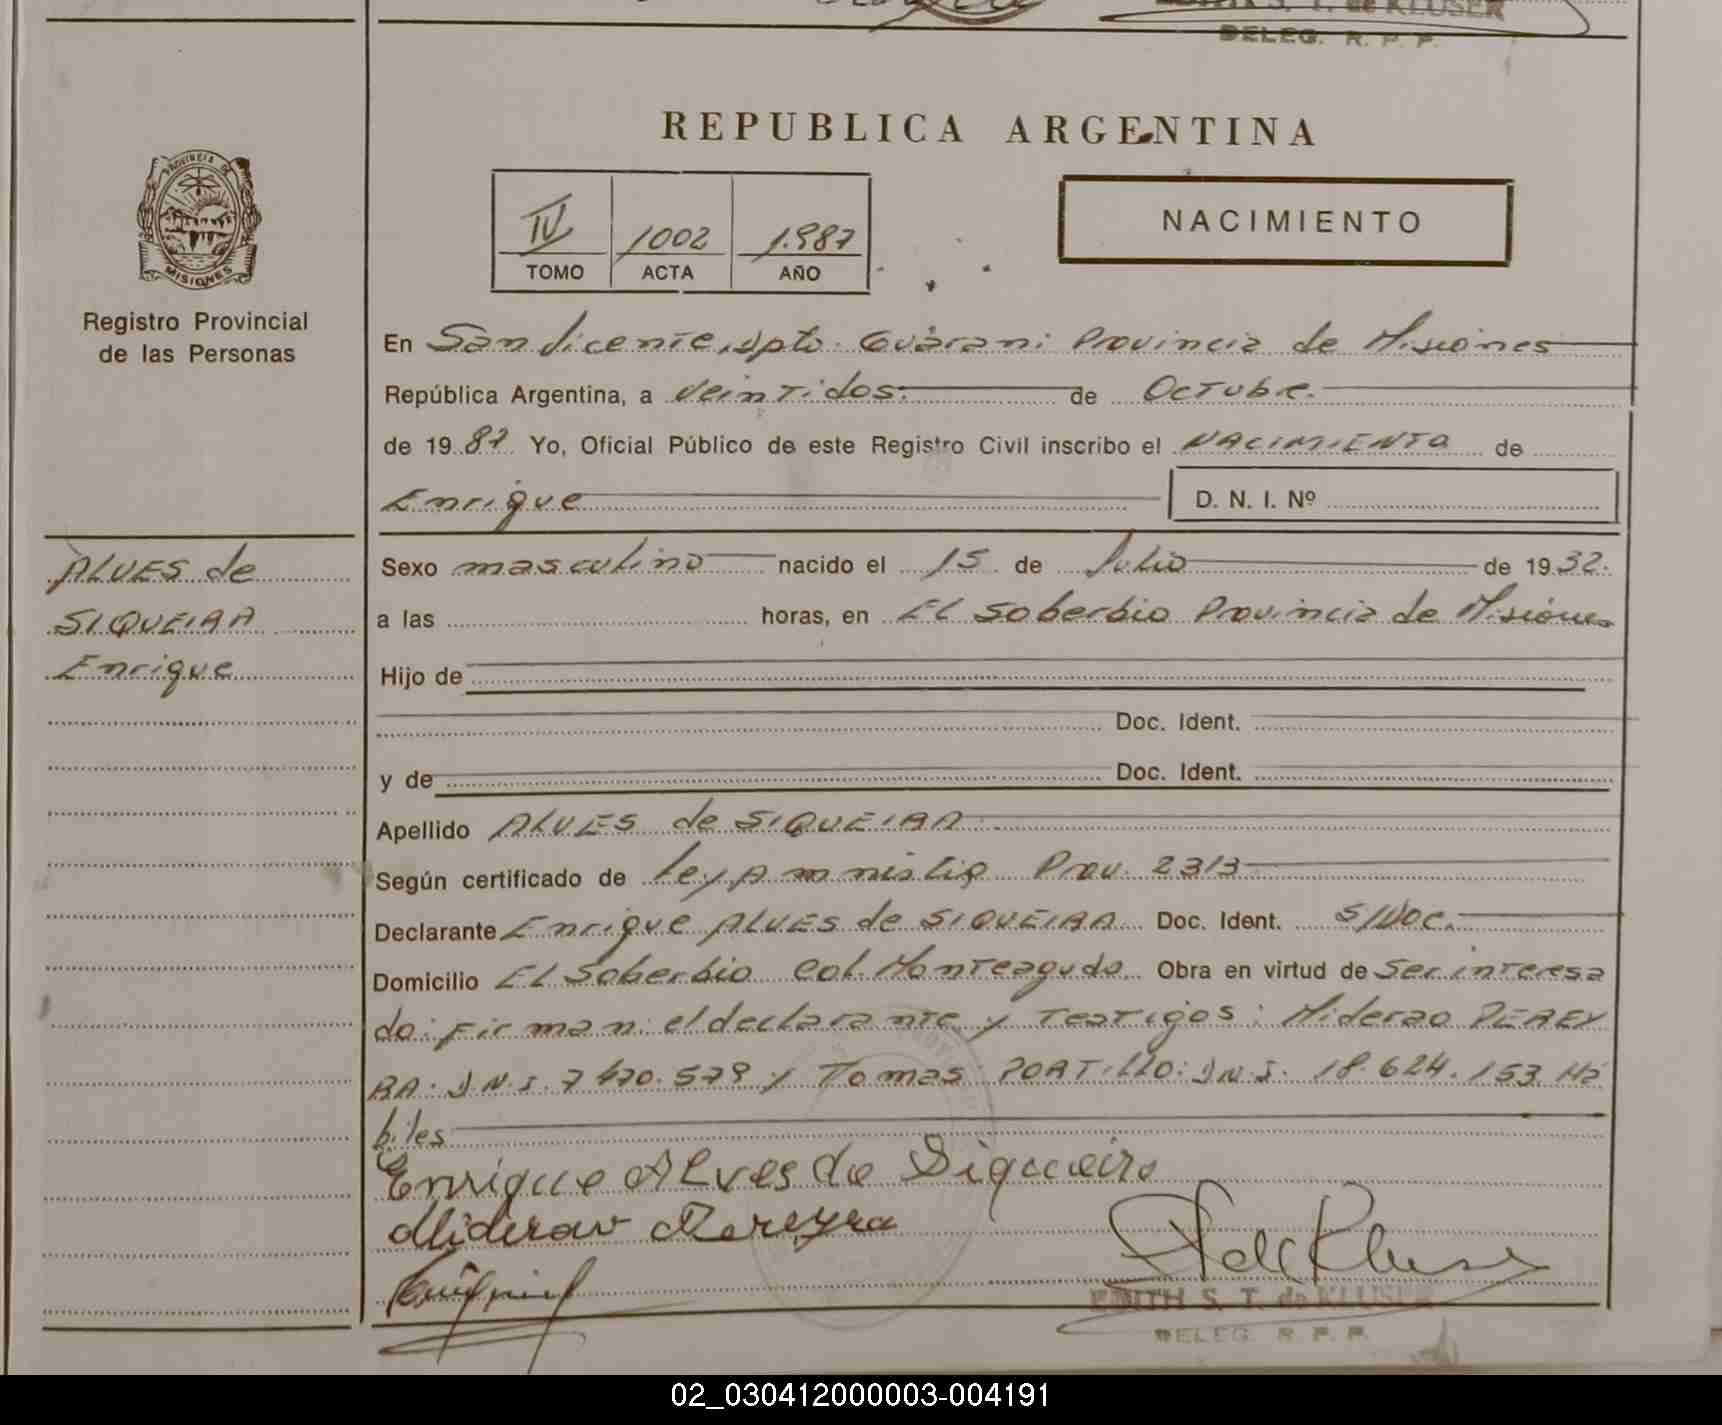 EDITH S. T. de KLUSER
DELEG. R. P. P.
REPUBLICA ARGENTINA
PROVINCIA DE
MISIONES
Registro Provincial
de las Personas
IV 1002 1.987
TOMO ACTA AÑO
NACIMIENTO
En San Vicente, Dpto. Guarani Provincia de Misiones
República Argentina, a Veintidos. de Octubre.
de 19 87 Yo, Oficial Público de este Registro Civil inscribo el NACIMIENTO de
Enrique D. N. I. Nº
ALVES de
SIQUEIRA
Enrique
Sexo masculino nacido el 15 de Julio de 19 32.
a las horas, en El Soberbio Provincia de Misiones
Hijo de
Doc. Ident.
y de Doc. Ident.
Apellido ALVES de SIQUEIRA
Según certificado de Ley Amnistia Prov. 2313
Declarante Enrique ALVES de SIQUEIRA Doc. Ident. S/Doc.
Domicilio El Soberbio Col. Monteagudo Obra en virtud de Ser interesa
do: Firman: el declarante y Testigos: Miderao PEREY
RA: D.N.I. 7.470.579 y Tomas PORTILLO: D.N.I. 18.624.153 Há
biles
Enrique Alves de Siqueira
Miderao Pereyra
EDITH S. T. de KLUSER
DELEG. R. P. P.
02_030412000003-004191